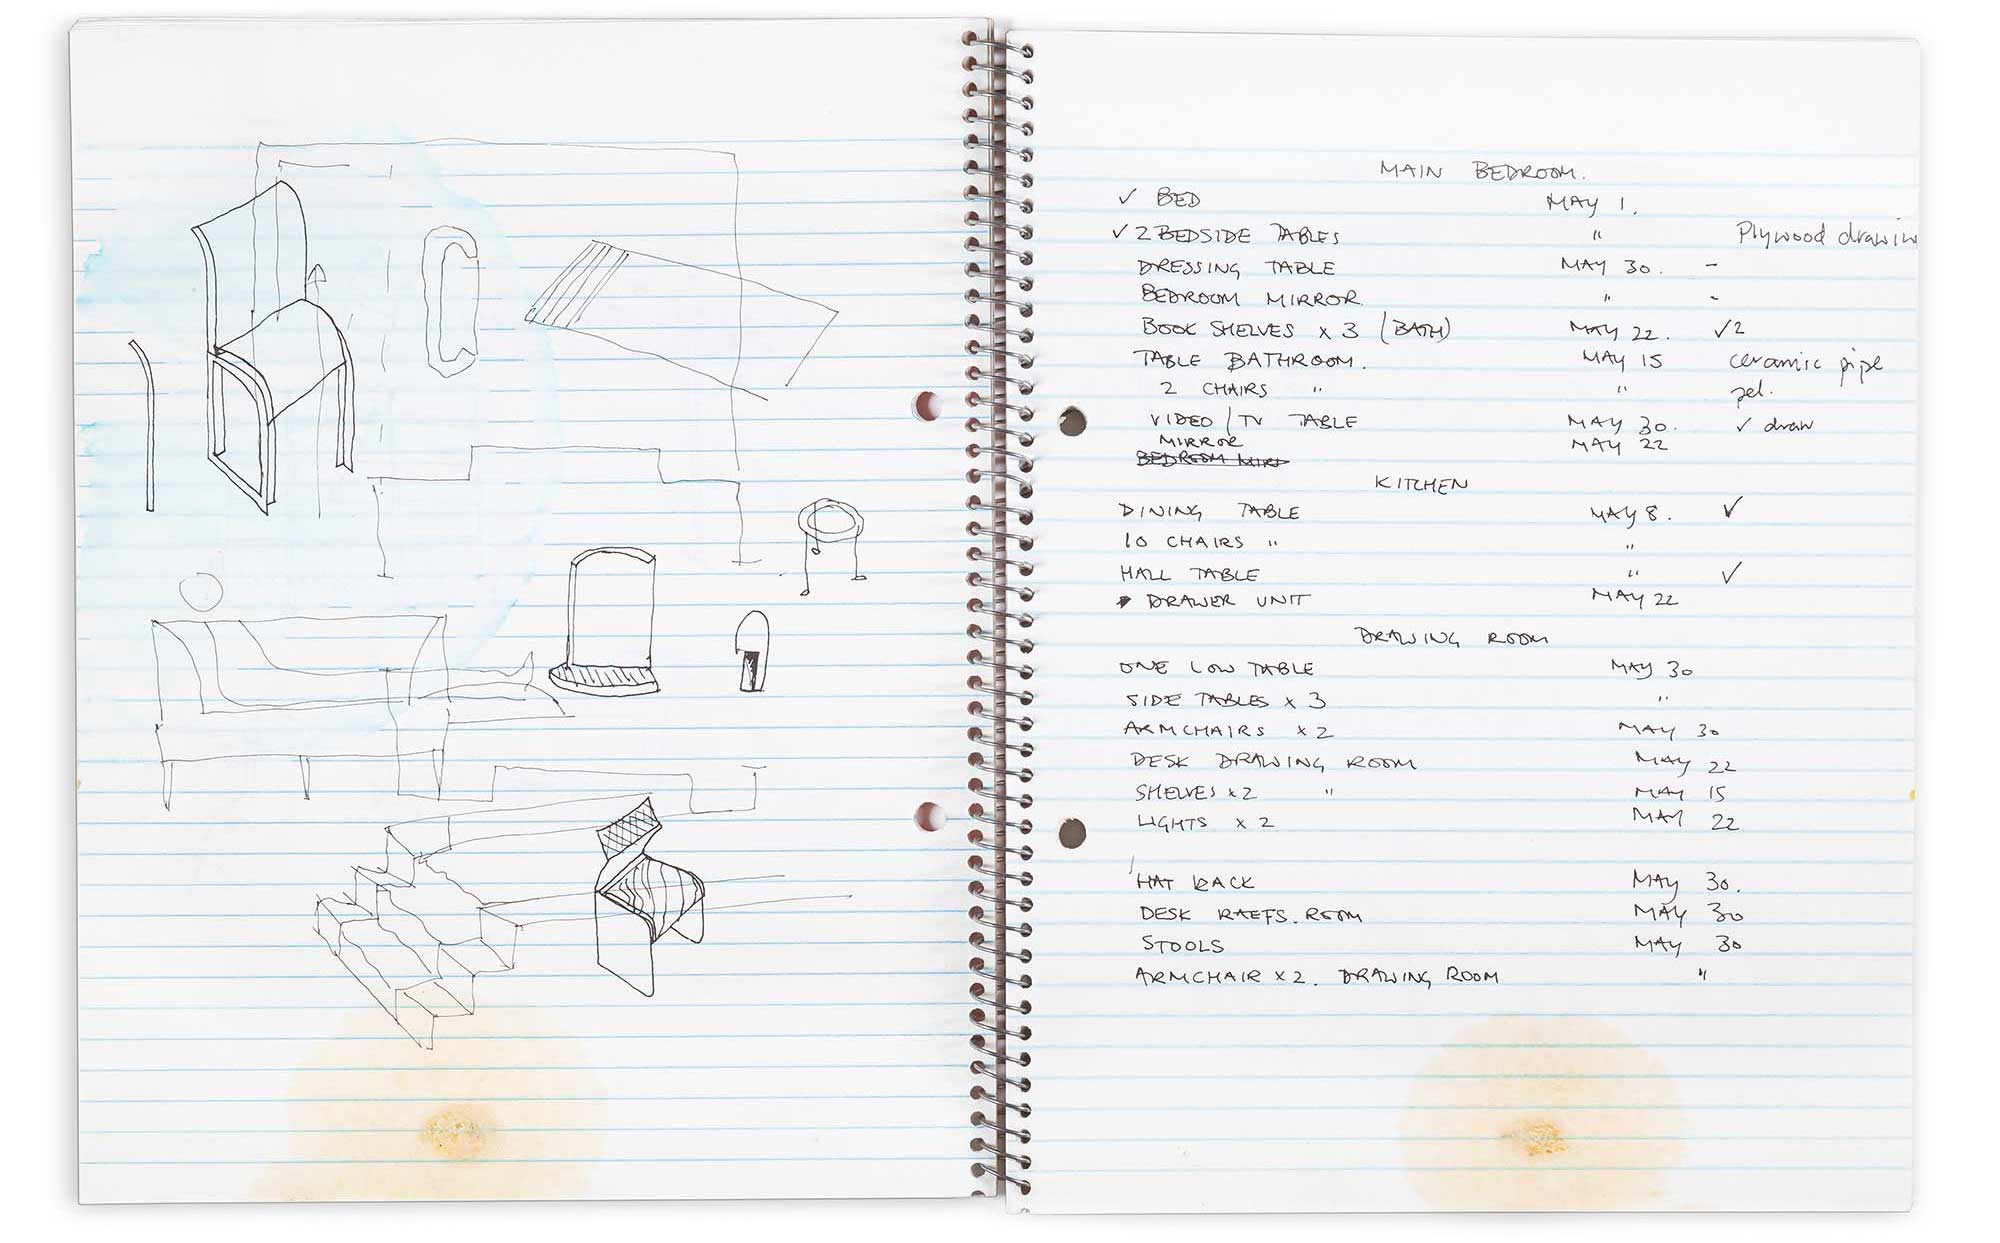 MAIN BEDROOM.
✓ BED MAY 1.
✓ 2 BEDSIDE TABLES " Plywood drawin
DRESSING TABLE MAY 30. -
BEDROOM MIRROR " -
BOOK SHELVES x 3 (BATH) MAY 22. ✓2
TABLE BATHROOM. MAY 15 ceramic pipe
2 CHAIRS " "
VIDEO / TV TABLE MAY 30. ✓ draw
MIRROR MAY 22
BEDROOM MIRR
KITCHEN
DINING TABLE MAY 8. ✓
10 CHAIRS " "
HALL TABLE " ✓
DRAWER UNIT MAY 22
DRAWING ROOM
ONE LOW TABLE MAY 30
SIDE TABLES x 3 "
ARMCHAIRS x 2 MAY 30
DESK DRAWING ROOM MAY 22
SHELVES x 2 " MAY 15
LIGHTS x 2 MAY 22
HAT RACK MAY 30.
DESK RAEFS. ROOM MAY 30
STOOLS MAY 30
ARMCHAIR x 2. DRAWING ROOM "